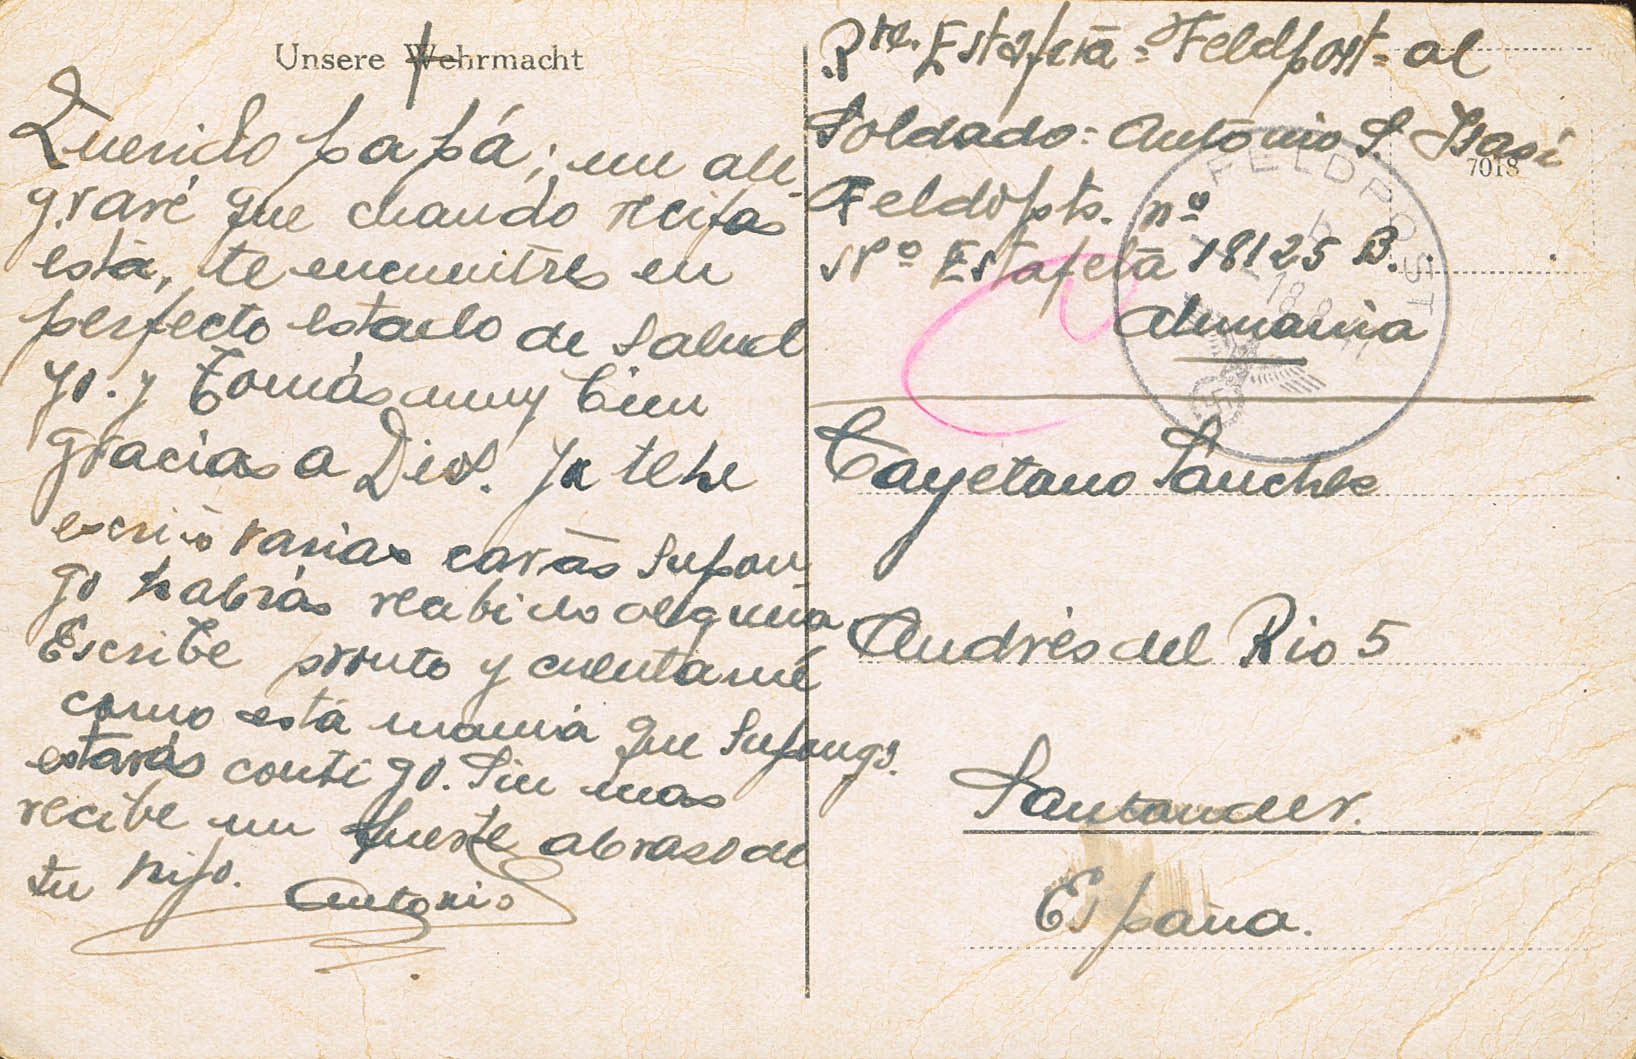 Unsere Wehrmacht
Querido papá; me ale-
graré que cuando recibas
está, te encuentres en
perfecto estado de salud
yo. y Tomás muy bien
gracias a Dios. Ya te he
escrito varias cartas supon-
go habrás recibido alguna
Escribe pronto y cuentamé
como está mamá que supongo.
estarás contigo. Sin mas
recibe un fuerte abraso de
tu hijo. Antonio
Rte. Estafeta = Feldpost = al
Soldado: Antonio S. Isasi
7018
Feldopts. nº
Nº Estafeta 18125 B.
Alemania
FELDPOST
Cayetano Sanchez
Andrés del Rio 5
Santander.
España.